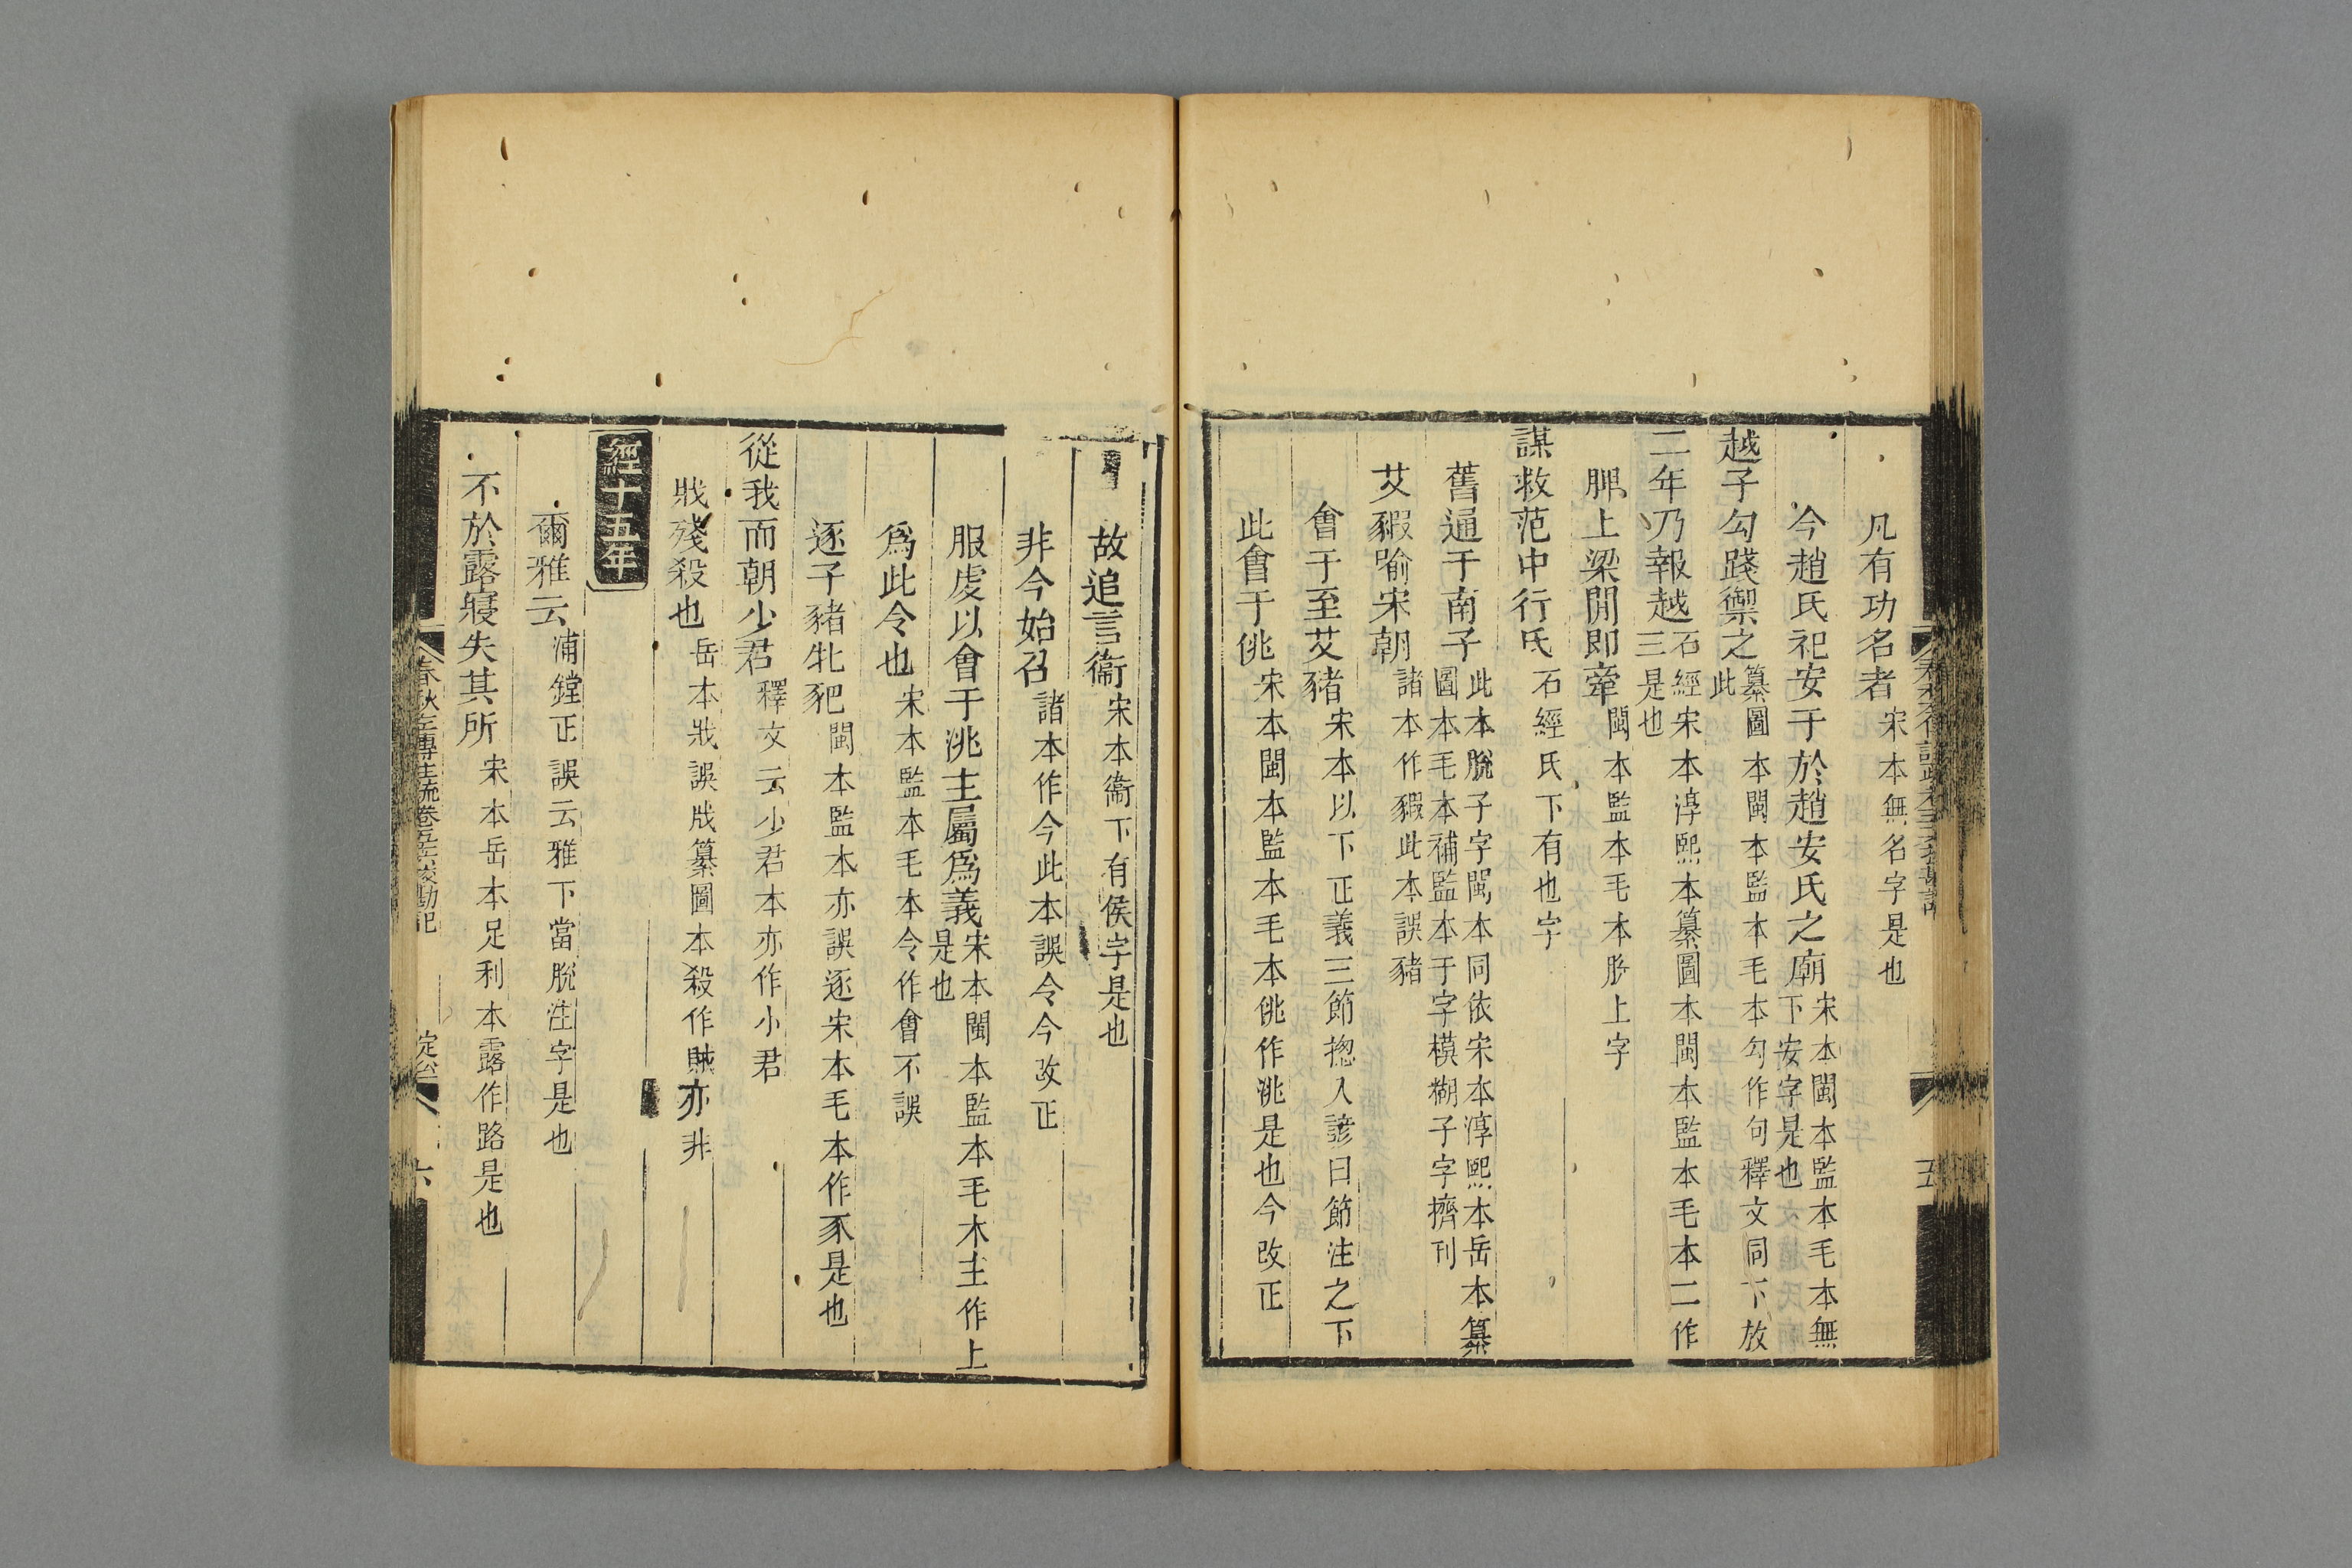 凡有功名者宋本無名字是也
今趙氏祀安于於趙安氏之廟宋本閩本監本毛本無下安字是也
越子勾踐禦之纂圖本閩本監本毛本勾作句釋文同下放此
二年乃報越石經宋本淳熙本纂圖本閩本監本毛本二作三是也
脾上梁閒即牽閩本監本毛本脫上字
謀救范中行氏石經氏下有也字
舊通于南子此本脫子字閩本同依宋本淳熙本岳本纂圖本毛本補監本于字模糊子字擠刊
艾豭喻宋朝諸本作豭此本誤豬
會于至艾豬宋本以下正義三節揔入諺曰節注之下
此會于佻宋本閩本監本毛本佻作洮是也今改正
故追言衞宋本衞下有侯字是也
非今始召諸本作今此本誤令今改正
服虔以會于洮主屬爲義宋本閩本監本毛木主作上是也
爲此令也宋本監本毛本令作會不誤
逐子豬牝豝閩本監本亦誤逐宋本毛本作豕是也
從我而朝少君釋文云少君本亦作小君
戕殘殺也岳本戕誤戕纂圖本殺作賊亦非
經十五年
爾雅云浦鏜正誤云雅下當脫注字是也
不於露寢失其所宋本岳本足利本露作路是也
春秋左傳注疏卷五十六校勘記
六
五